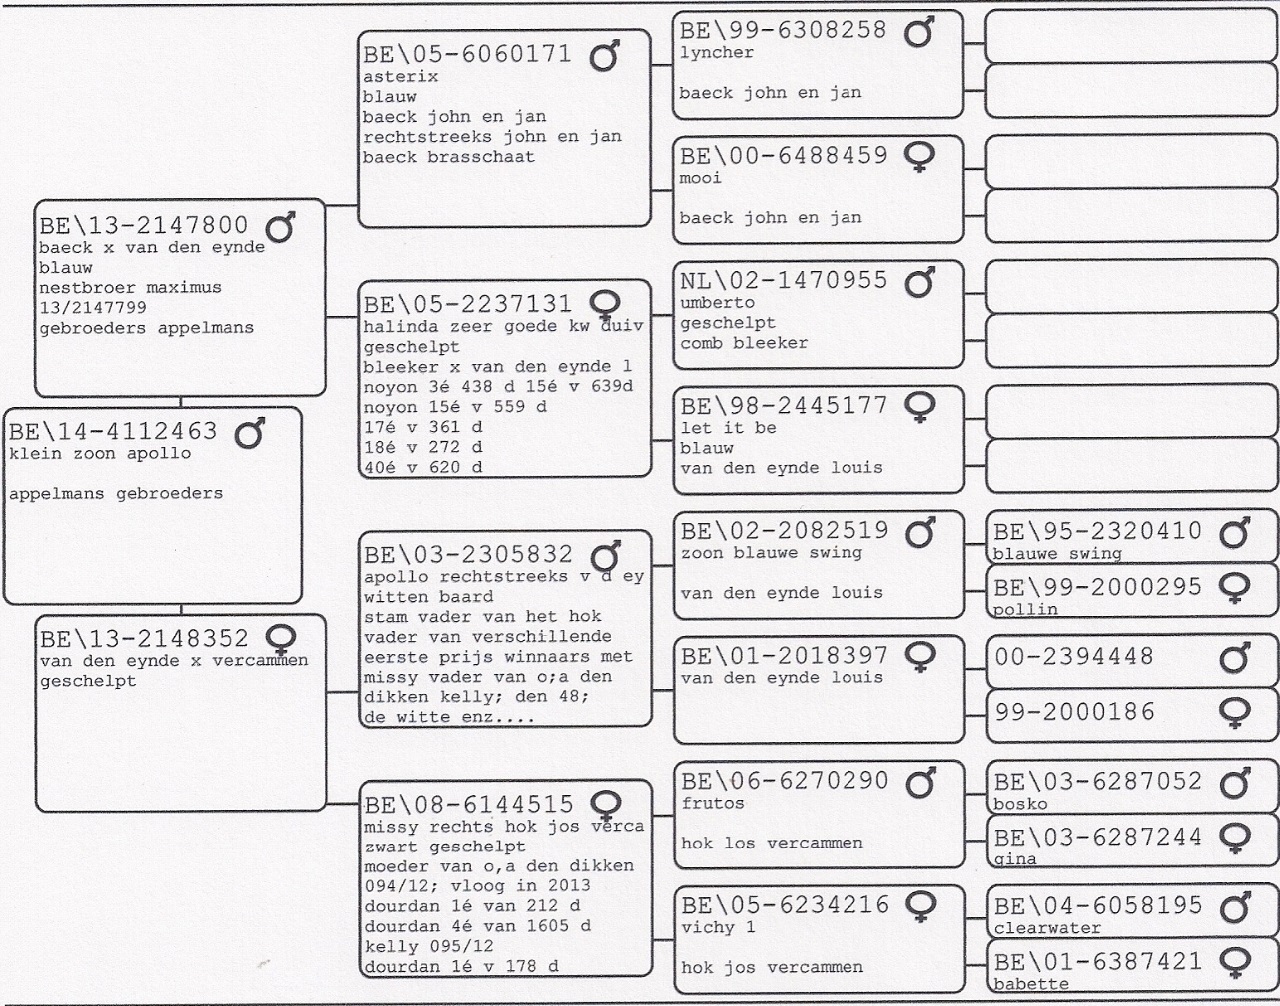 BE\13-2147800
baeck x van den eynde
blauw
nestbroer maximus
13/2147799
gebroeders appelmans
BE\14-4112463
klein zoon apollo
appelmans gebroeders
BE\13-2148352
van den eynde x vercammen
geschelpt
BE\05-6060171
asterix
blauw
baeck john en jan
rechtstreeks john en jan
baeck brasschaat
BE\05-2237131
halinda zeer goede kw duiv
geschelpt
bleeker x van den eynde l
noyon 3é 438 d 15é v 639d
noyon 15é v 559 d
17é v 361 d
18é v 272 d
40é v 620 d
BE\03-2305832
apollo rechtstreeks v d ey
witten baard
stam vader van het hok
vader van verschillende
eerste prijs winnaars met
missy vader van o;a den
dikken kelly; den 48;
de witte enz....
BE\08-6144515
missy rechts hok jos verca
zwart geschelpt
moeder van o,a den dikken
094/12; vloog in 2013
dourdan 1é van 212 d
dourdan 4é van 1605 d
kelly 095/12
dourdan 1é v 178 d
BE\99-6308258
lyncher
baeck john en jan
BE\00-6488459
mooi
baeck john en jan
NL\02-1470955
umberto
geschelpt
comb bleeker
BE\98-2445177
let it be
blauw
van den eynde louis
BE\02-2082519
zoon blauwe swing
van den eynde louis
BE\01-2018397
van den eynde louis
BE\06-6270290
frutos
hok los vercammen
BE\05-6234216
vichy 1
hok jos vercammen
BE\95-2320410
blauwe swing
BE\99-2000295
pollin
00-2394448
99-2000186
BE\03-6287052
bosko
BE\03-6287244
gina
BE\04-6058195
clearwater
BE\01-6387421
babette